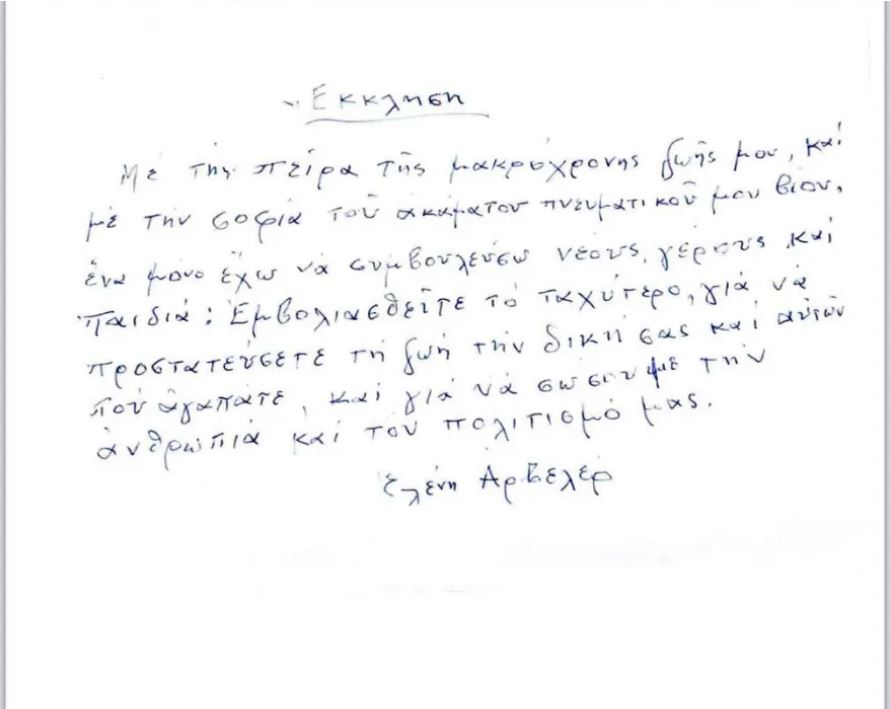 Εκκληση
Μέ τήν πεῖρα τῆς μακρόχρονης ζωῆς μου, καί
μέ τήν σοφία τοῦ ἀκάματου πνευματικοῦ μου βίου,
ἕνα μόνο ἔχω νά συμβουλεύσω νέους, γέρους καί
παιδιά: Ἐμβολιασθεῖτε τό ταχύτερο, γιά νά
προστατεύσετε τή ζωή τήν δική σας καί αὐτῶν
πού ἀγαπᾶτε, καί γιά νά σώσουμε τήν
ἀνθρωπιά καί τόν πολιτισμό μας.
Ελένη Αρβελέρ